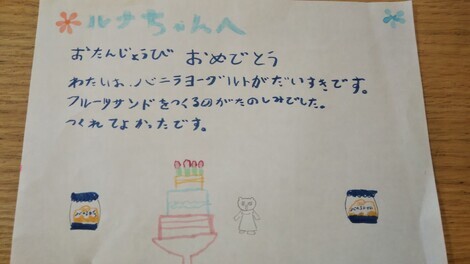 ルナちゃんへ
おたんじょうび おめでとう
わたしは、バニラヨーグルトがだいすきです。
フルーツサンドをつくるのがたのしみでした。
つくれてよかったです。